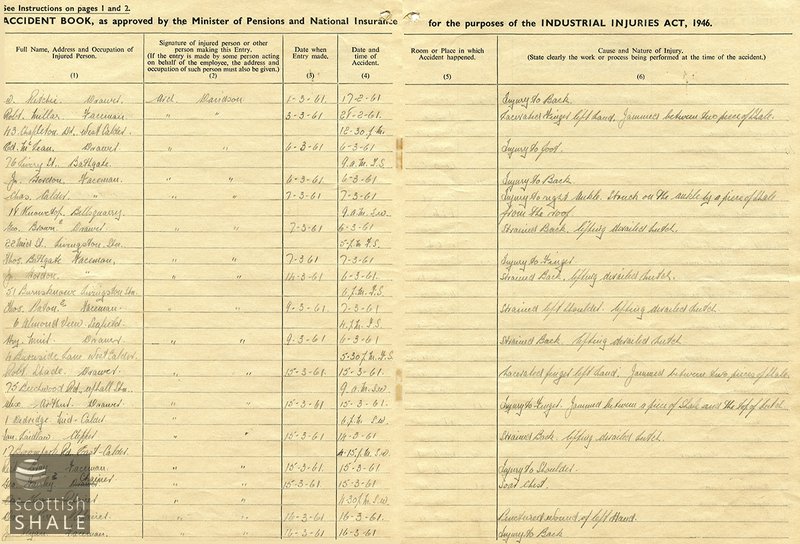 See Instructions on pages 1 and 2.
ACCIDENT BOOK, as approved by the Minister of Pensions and National Insurance for the purposes of the INDUSTRIAL INJURIES ACT, 1946.
Full Name, Address and Occupation of Injured Person. (1)
Signature of injured person or other person making this Entry. (If the entry is made by some person acting on behalf of the employee, the address and occupation of such person must also be given.) (2)
Date when Entry made. (3)
Date and time of Accident. (4)
Room or Place in which Accident happened. (5)
Cause and Nature of Injury. (State clearly the work or process being performed at the time of the accident.) (6)
Ritchie Drawer Arch. Davidson 1-3-61 17-2-61 Injury to Back
Robt. Millar Faceman " " 3-3-61 28-2-61. Lacerated Finger left hand. Jammed between two pieces of shale.
43 St West Calder 12-30 p.m.
McLean Drawer " " 6-3-61 6-3-61 Injury to foot.
76 St. Bathgate 9 a.m. F.S.
Jn. Gordon Faceman. " " 6-3-61 6-3-61 Injury to Back
Chas. Calder " " " 7-3-61 7-3-61 Injury to right Ankle. Struck on the ankle by a piece of shale
18 Knowetop Bellsquarry 9 a.m. S.W. from the roof
Brown Drawer " " 7-3-61 6-3-61 Strained Back. lifting derailed hutch.
St. Livingston Stn. 5 p.m. F.S.
Thos. Bathgate Faceman, " " 7-3-61 7-3-61 Injury to Finger
Jn. Gordon " " " 14-3-61 6-3-61 Strained Back. lifting derailed hutch.
51 Livingston Stn. 6 p.m. F.S.
Thos. Paton Faceman " " 9-3-61 7-3-61 Strained left shoulder. lifting derailed hutch
6 Almond View Seafield. 4 p.m. F.S.
Muir Drawer " " 9-3-61 6-3-61 Strained Back. lifting derailed hutch
4 Burnside Lane West Calder. 5-30 p.m. F.S.
Robt. Drawer " " 15-3-61 15-3-61. Lacerated finger left hand. Jammed between two pieces of shale.
75 Beechwood Rd. Uphall Stn. 9 a.m. S.W.
Alex. Arthur Drawer " " 15-3-61 15-3-61. Injury to Finger. Jammed between a piece of shale and the top of hutch
1 Mid-Calder 6 p.m. S.W.
Laidlaw " " 15-3-61 Strained Back. lifting derailed hutch.
17 Rd. East-Calder. 4-15 p.m. S.W.
Faceman " " 15-3-61 15-3-61 Injury to Shoulder.
" " 15-3-61 15-3-61 Chest.
4-30 p.m. S.W.
" " 16-3-61 16-3-61. Punctured wound of left hand.
" " 16-3-61 16-3-61 Injury to Back
scottish
SHALE